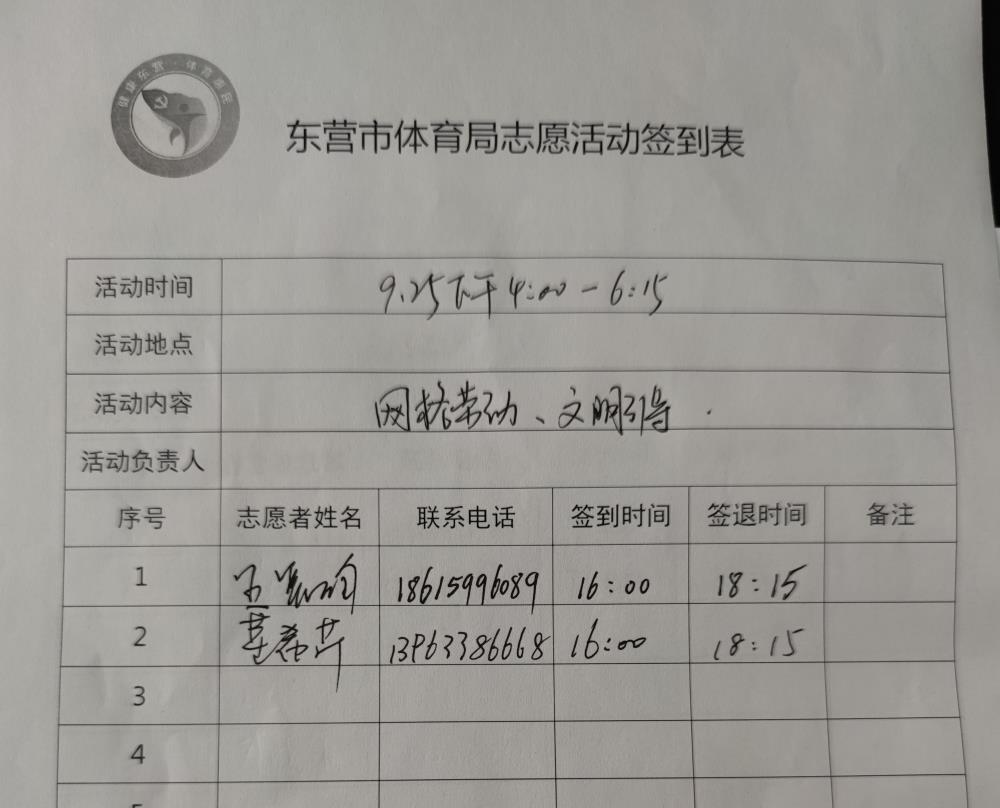 健康东营·体育惠民
东营市体育局志愿活动签到表
活动时间 9.25下午4:00-6:15
活动地点
活动内容 网格劳动、文明引导.
活动负责人
序号 志愿者姓名 联系电话 签到时间 签退时间 备注
1 18615996089 16:00 18:15
2 13963386668 16:00 18:15
3
4